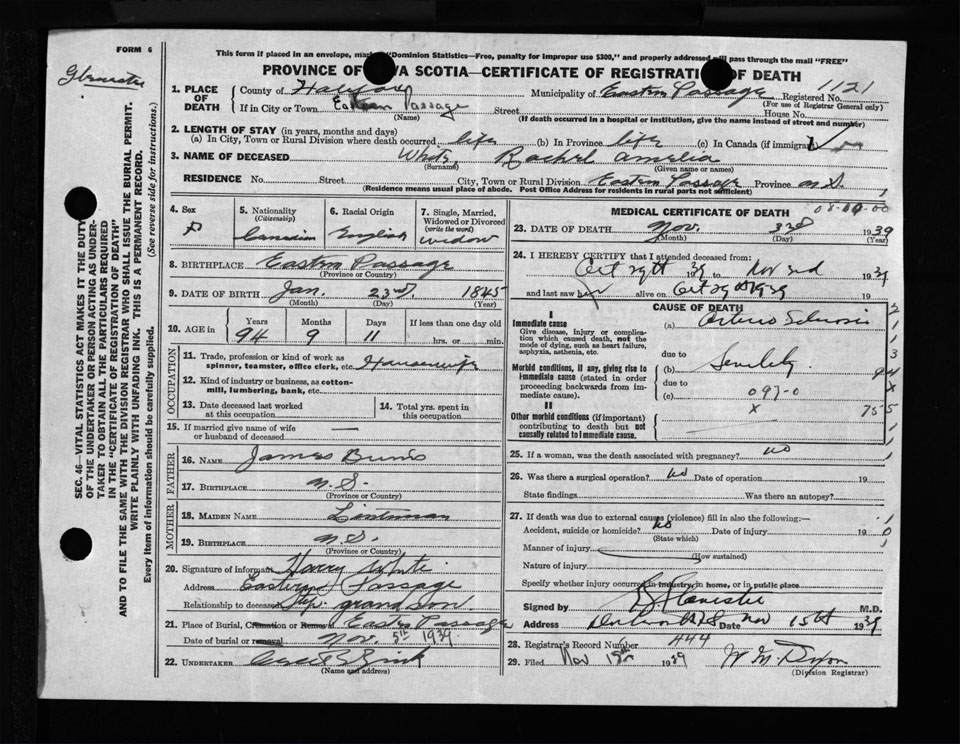 FORM 6
This form if placed in an envelope, "Dominion Statistics—Free, penalty for improper use $300," and properly addressed will pass through the mail "FREE"
PROVINCE OF SCOTIA—CERTIFICATE OF REGISTRATION OF DEATH
1. PLACE OF DEATH
County of Halifax Municipality of Eastern Passage Registered No. 1121
(For use of Registrar General only)
If in City or Town Eastern Passage Street House No.
(Name) (If death occurred in a hospital or institution, give the name instead of street and number)
2. LENGTH OF STAY (in years, months and days)
(a) In City, Town or Rural Division where death occurred life (b) In Province life (c) In Canada (if immigrant)
3. NAME OF DECEASED White, Rachel Amelia
(Surname) (Given name or names)
RESIDENCE No. Street City, Town or Rural Division Eastern Passage Province N.S.
(Residence means usual place of abode. Post Office Address for residents in rural parts not sufficient)
SEC. 46—VITAL STATISTICS ACT MAKES IT THE DUTY
OF THE UNDERTAKER OR PERSON ACTING AS UNDER-
TAKER TO OBTAIN ALL THE PARTICULARS REQUIRED
IN THE "CERTIFICATE OF REGISTRATION OF DEATH"
AND TO FILE THE SAME WITH THE DIVISION REGISTRAR WHO SHALL ISSUE THE BURIAL PERMIT.
WRITE PLAINLY WITH UNFADING INK. THIS IS A PERMANENT RECORD.
Every item of information should be carefully supplied. (See reverse side for instructions.)
4. Sex F
5. Nationality (Citizenship) Canadian
6. Racial Origin English
7. Single, Married, Widowed or Divorced (write the word) widow
8. BIRTHPLACE Eastern Passage
(Province or Country)
9. DATE OF BIRTH Jan. 23rd. 1845
(Month) (Day) (Year)
10. AGE in Years Months Days If less than one day old
94 9 11 hrs. or min.
OCCUPATION
11. Trade, profession or kind of work as spinner, teamster, office clerk, etc. Housewife
12. Kind of industry or business, as cotton-mill, lumbering, bank, etc.
13. Date deceased last worked at this occupation
14. Total yrs. spent in this occupation
15. If married give name of wife or husband of deceased —
FATHER
16. NAME James
17. BIRTHPLACE N.S.
(Province or Country)
MOTHER
18. MAIDEN NAME
19. BIRTHPLACE N.S.
(Province or Country)
20. Signature of informant Harry White
Address Eastern Passage
Relationship to deceased Step grandson
21. Place of Burial, Cremation or Removal Eastern Passage
Date of burial or removal Nov. 5th 1939
22. UNDERTAKER
(Name and address)
MEDICAL CERTIFICATE OF DEATH
23. DATE OF DEATH Nov. 3rd 1939
(Month) (Day) (Year)
24. I HEREBY CERTIFY that I attended deceased from:
Oct 29th 1939 to Nov 3rd 1939
and last saw her alive on Oct 29th 1939 19
CAUSE OF DEATH
I
Immediate cause
Give disease, injury or complication which caused death, not the mode of dying, such as heart failure, asphyxia, asthenia, etc.
(a) Arterio Sclerosis
due to
Morbid conditions, if any, giving rise to immediate cause (stated in order proceeding backwards from immediate cause).
(b) Senility
due to
(c) 097-0
II
Other morbid conditions (if important) contributing to death but not causally related to immediate cause.
x
25. If a woman, was the death associated with pregnancy? no
26. Was there a surgical operation? no Date of operation 19
State findings Was there an autopsy?
27. If death was due to external causes (violence) fill in also the following:—
Accident, suicide or homicide? no Date of injury 19
(State which)
Manner of injury
(How sustained)
Nature of injury
Specify whether injury occurred in industry, in home, or in public place
Signed by M.D.
Address Date Nov 15th 1939
28. Registrar's Record Number 444
29. Filed Nov 1939 W. M. Dixon
(Division Registrar)